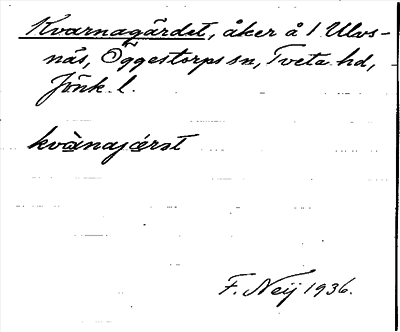 Kvarnagärdet, åker å 1 Ulvs-
näs, Öggestorps sn, Tveta hd,
Jönk. l.
kvànajærst
F. Neij 1936.